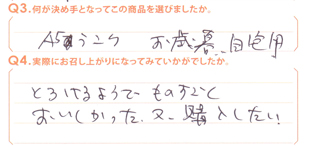 Q3.何が決め手となってこの商品を選びましたか。
お歳暮、自宅用
Q4.実際にお召し上がりになってみていかがでしたか。
とろけるようで ものすごく
おいしかった。又、購入したい!